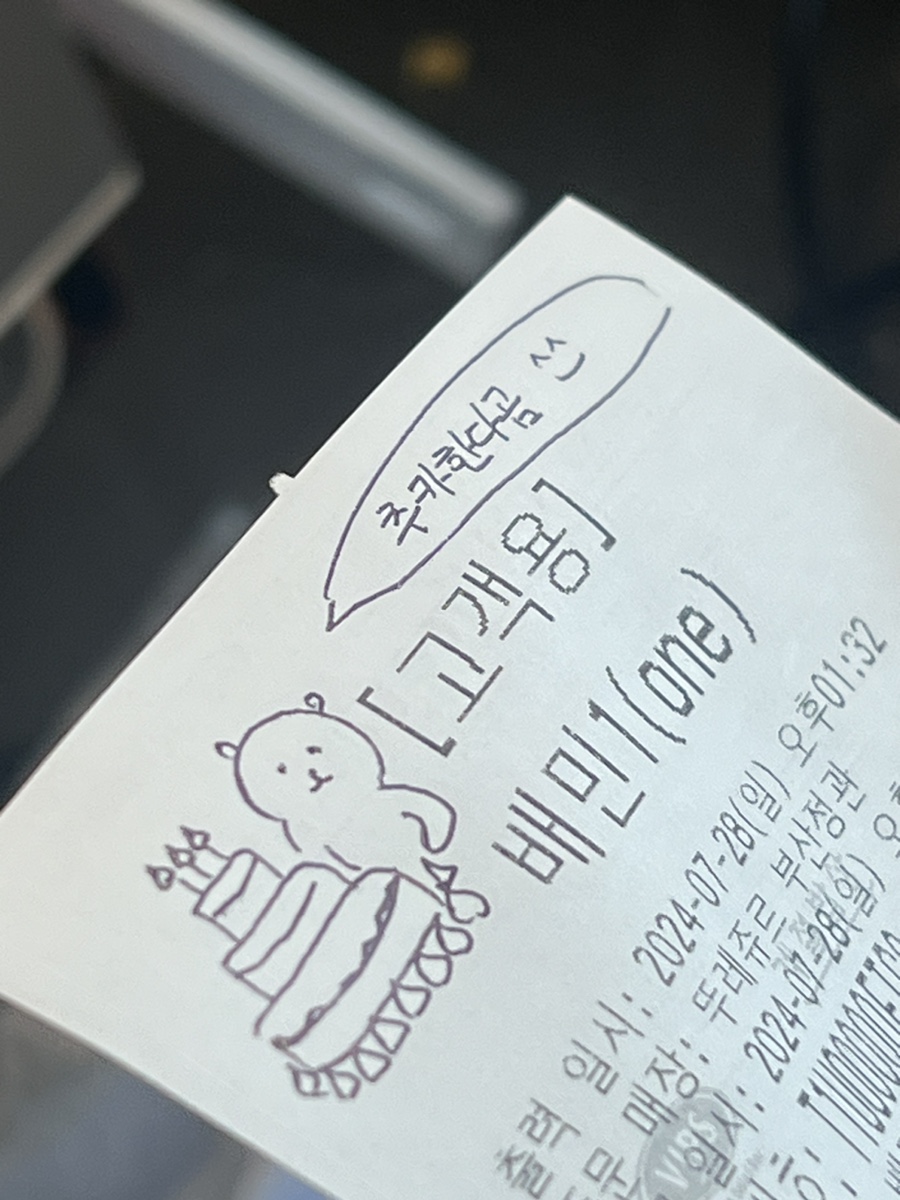 추카한다곰
[고객용]
배민1(one)
출력 일시: 2024-07-28(일) 오후01:32
매장: 뚜레쥬르 부산정관
일시: 2024-07-28(일)
VIPS